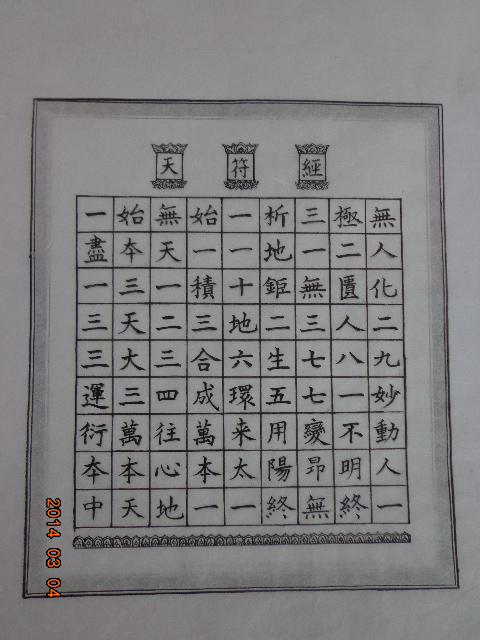 天 符 經
一始無始一析三極無
盡夲天一一地一二人
一三一積十鉅無匱化
三天二三地二三人二
三大三合六生七八九
運三四成環五七一妙
衍萬往萬来用變不動
夲本心本太陽昂明人
中天地一一終無終一
2014 03 04